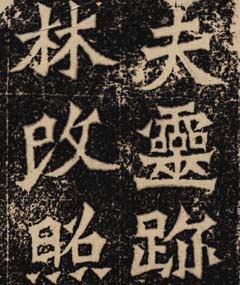 夫靈跡
林改照